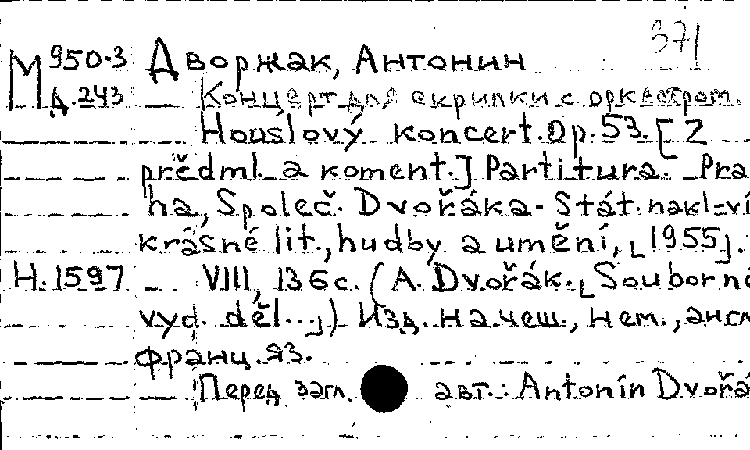 371
М 950-3 Дворжак, Антонин
Д.243 Концерт для скрипки с оркестром.
Houslový koncert. Op. 53. [Z
předml. a koment.] Partitura. Pra
ha, Společ. Dvořáka - Stát. nakl-ví
krásné lit., hudby a umění, [1955].
Н.1597 VIII, 136 с. (A. Dvořák. [Souborné
vyd. děl...]) Изд. на чеш., нем., англ
франц. яз.
Перед загл. авт.: Antonín Dvořá